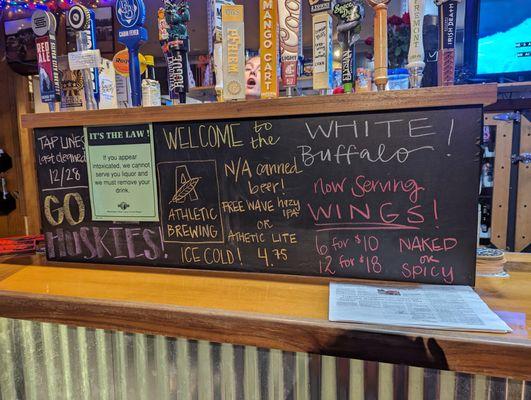 TAP LINES
last cleaned
12/28
GO
HUSKIES!
IT'S THE LAW!
If you appear
intoxicated, we cannot
serve you liquor and
we must remove your
drink.
WELCOME to the
ATHLETIC
BREWING
N/A canned
beer!
FREE WAVE HAZY
IPA
or
ATHLETIC LITE
ICE COLD! 4.75
WHITE
Buffalo
now serving
WINGS!
6 for $10
12 for $18
NAKED
or
SPICY
MANGO CART
Coors
LIGHT